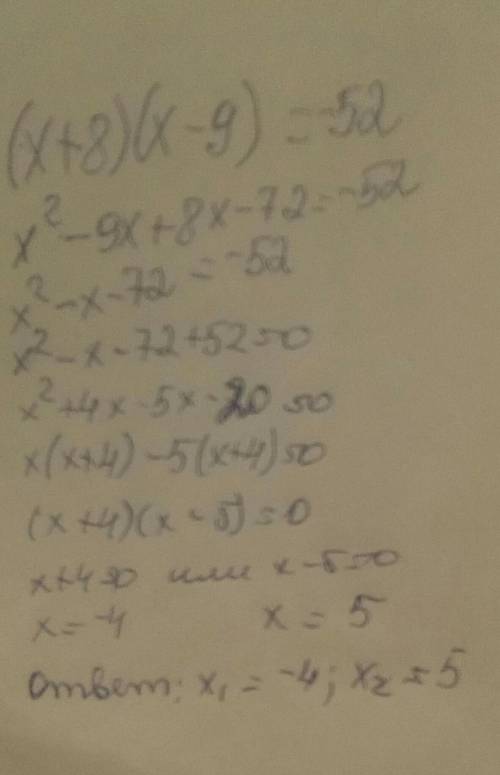 (x+8)(x-9) = -52
x² - 9x + 8x - 72 = -52
x² - x - 72 = -52
x² - x - 72 + 52 = 0
x² + 4x - 5x - 20 = 0
x(x+4) - 5(x+4) = 0
(x+4)(x-5) = 0
x+4=0 или x-5=0
x = -4 x = 5
Ответ: x₁ = -4; x₂ = 5